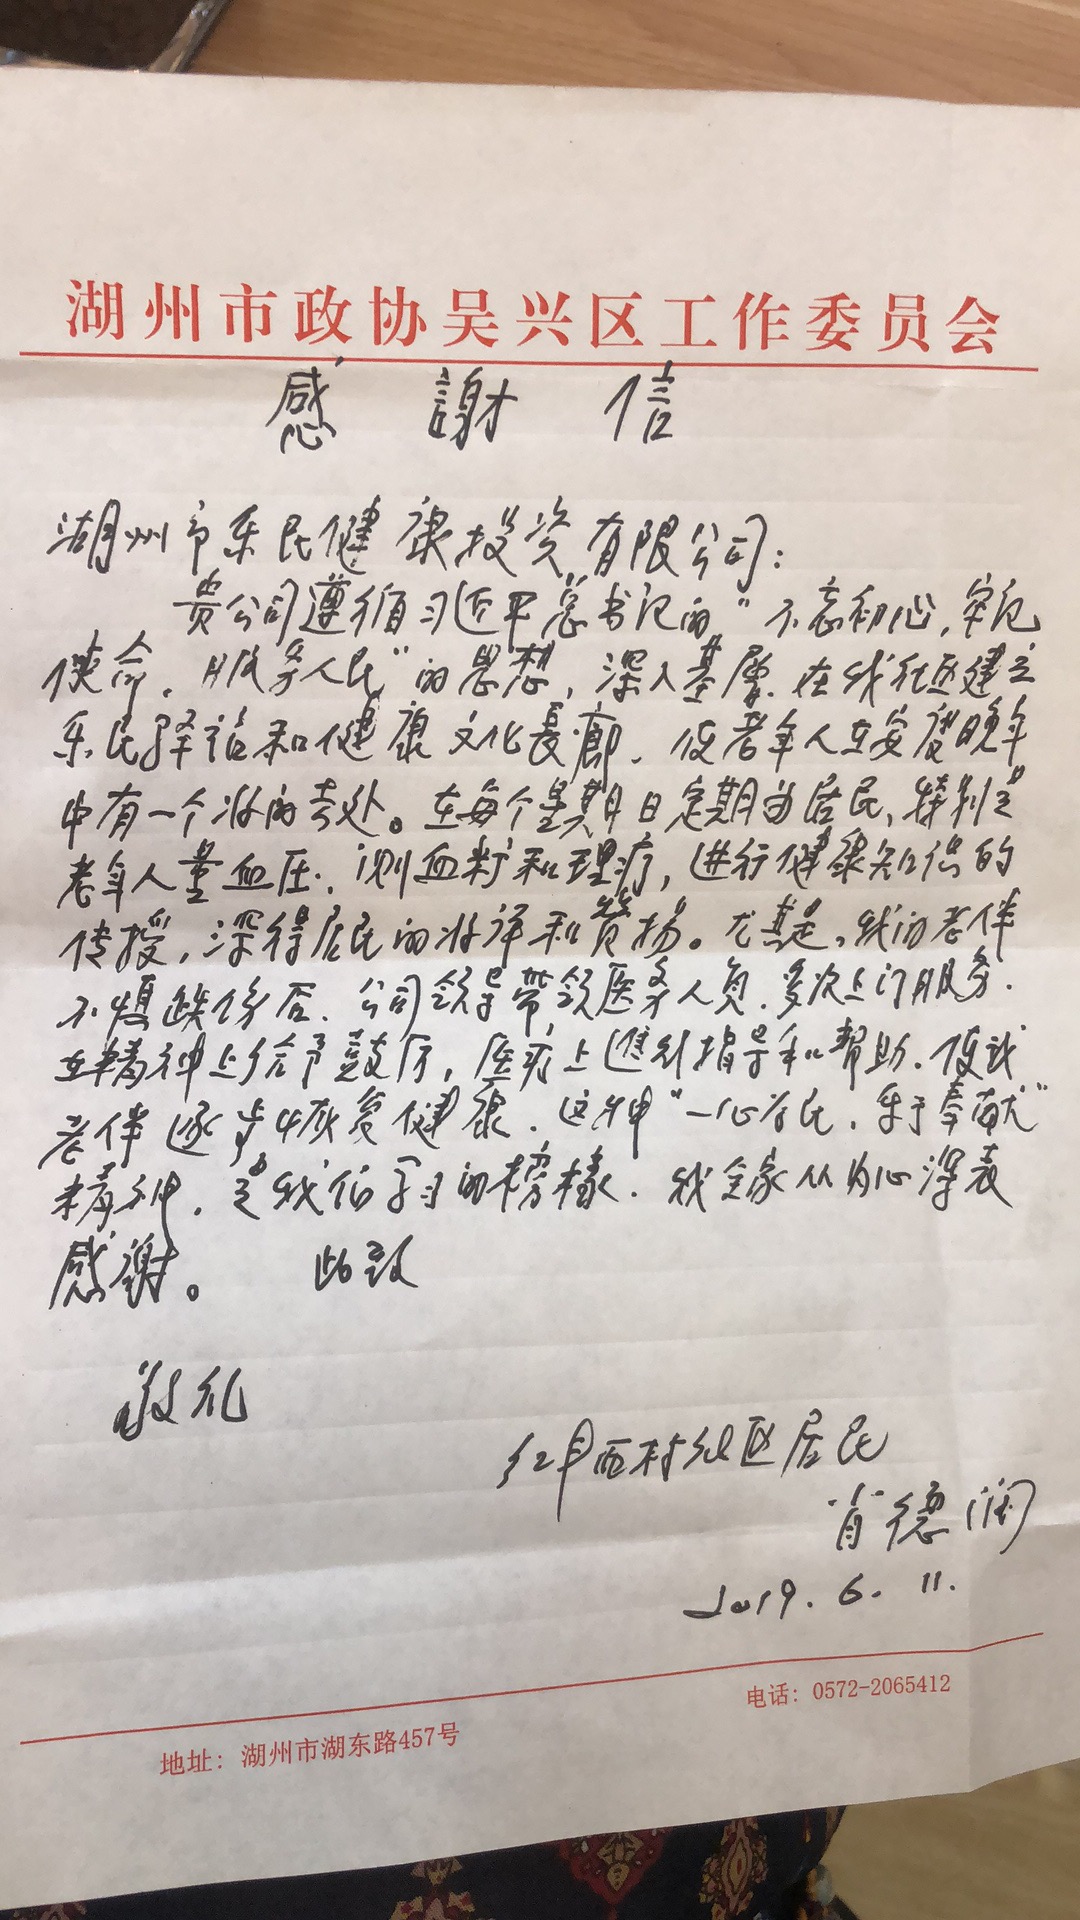 湖州市政协吴兴区工作委员会
感 謝 信
湖州市乐民健康投资有限公司：
贵公司遵循习近平总书记的“不忘初心，牢记
使命，服务人民”的思想，深入基層，在我社区建立
乐民驿站和健康文化長廊，使老年人在安度晚年
中有一个好的去处。在每个星期日定期为居民，特别是
老年人量血压，测血糖和理疗，进行健康知识的
传授，深得居民的好评和赞扬。尤其是，我的老伴
不慎跌伤后，公司领导带领医务人员，多次上门服务，
在精神上给予鼓厉，医疗上进行指导和帮助，使我
老伴逐步恢复健康，这种“一心为民，乐于奉献”
精神，是我们学习的榜樣，我全家从内心深表
感谢。 此致
敬礼
红丰西村社区居民
肖德润
2019.6.11.
电话：0572-2065412
地址：湖州市湖东路457号